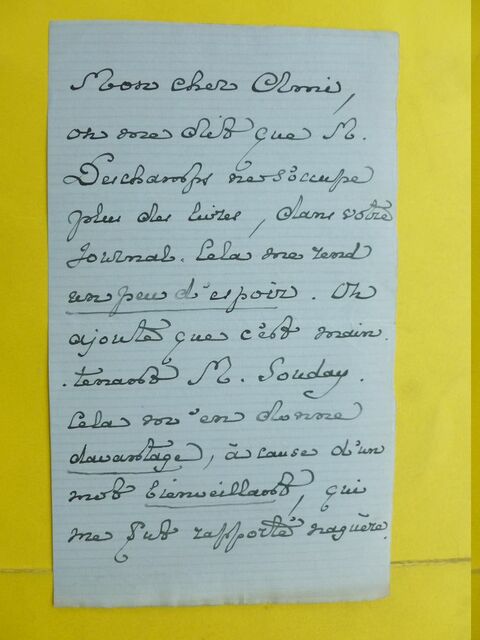 Mon cher Ami,
on me dit que M.
Deschamps ne s'occupe
plus des livres, dans votre
Journal. Cela me rend
un peu d'espoir. On
ajoute que c'est main-
-tenant M. Souday.
Cela m'en donne
davantage, à cause d'un
mot bienveillant, qui
me fut rapporté naguère.